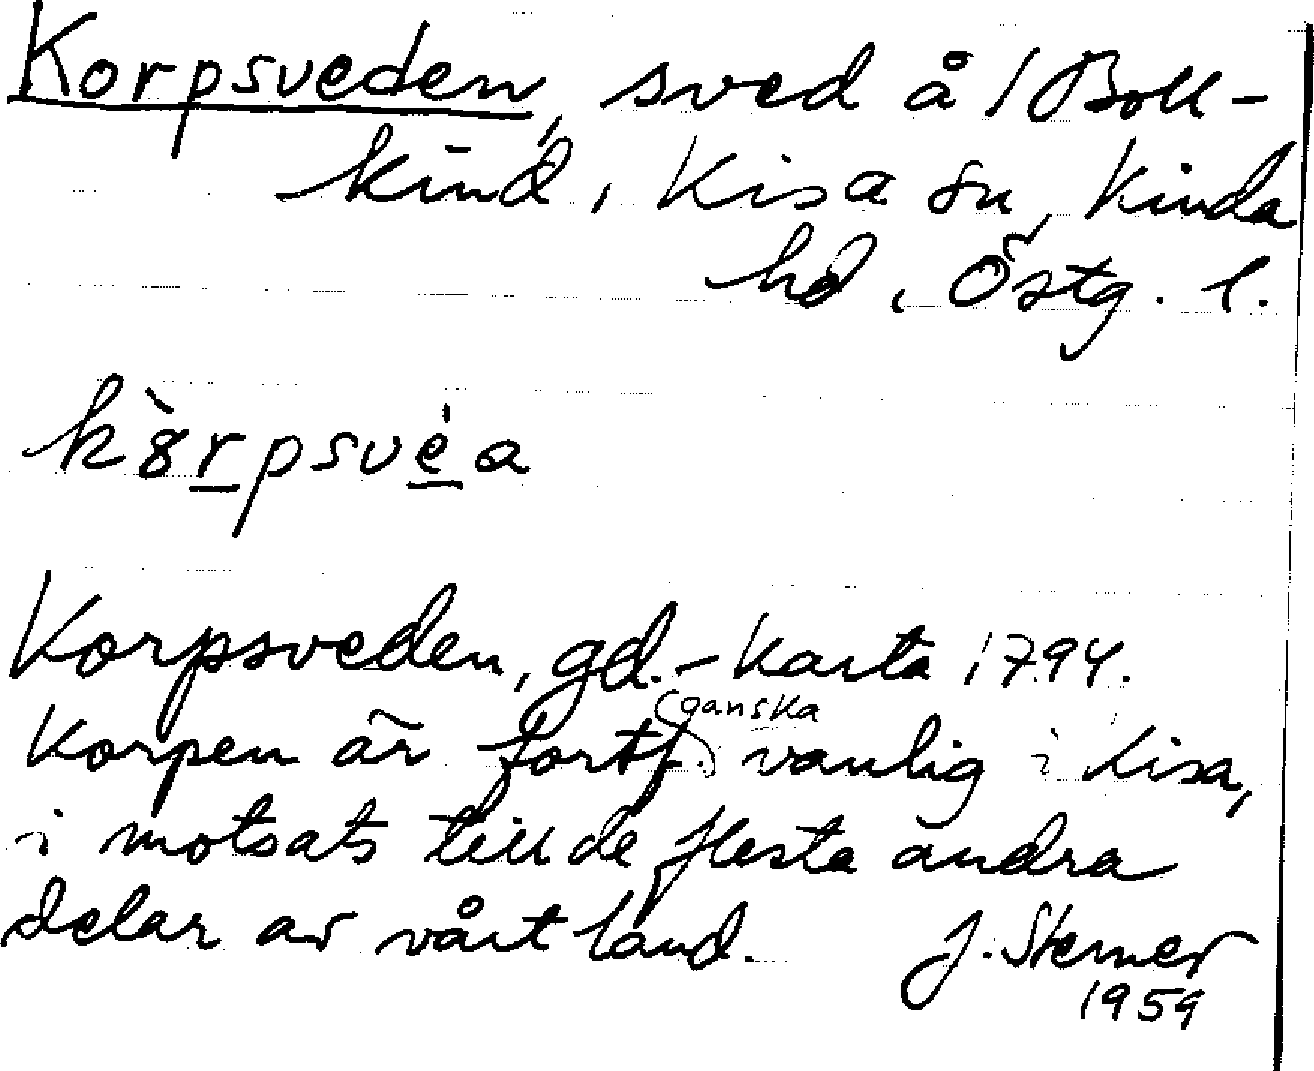 Korpsveden, sved å 1 Boll-
kind, Kisa sn, Kinda
hd, Östg. l.
kȣ̀rpsvèa
Korpsveden, gd. - Karta 1794.
Korpen är fortf. (ganska) vanlig i Kisa,
i motsats till de flesta andra
delar av vårt land. J. Sterner
1959